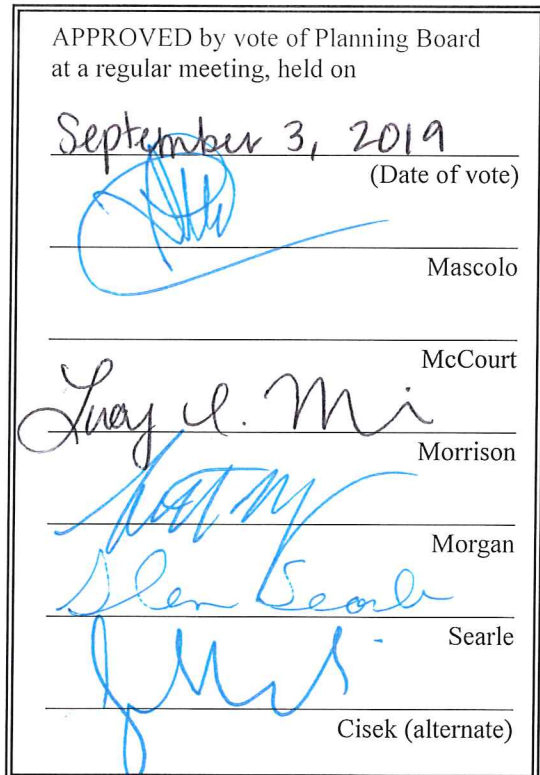 APPROVED by vote of Planning Board
at a regular meeting, held on
September 3, 2019
(Date of vote)
Mascolo
McCourt
Morrison
Morgan
Glen Searle
Searle
Cisek (alternate)